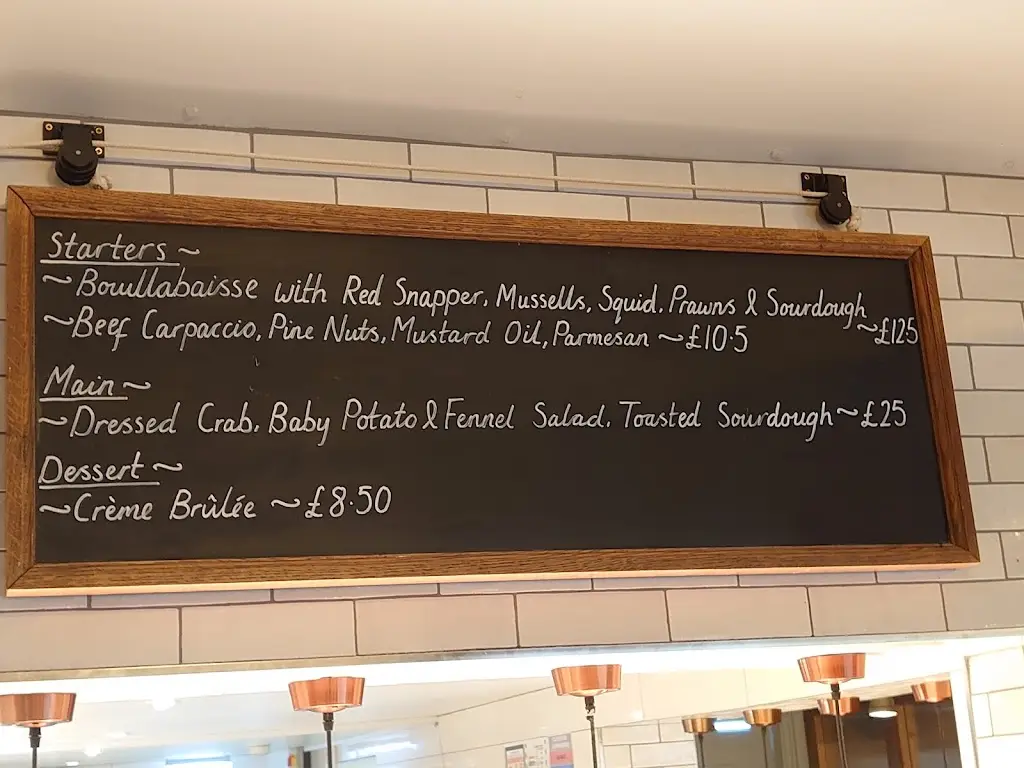 Starters ~
~Bouillabaisse with Red Snapper, Mussells, Squid, Prawns & Sourdough ~£12.5
~Beef Carpaccio, Pine Nuts, Mustard Oil, Parmesan ~£10.5
Main ~
~Dressed Crab, Baby Potato & Fennel Salad, Toasted Sourdough ~£25
Dessert ~
~Crème Brûlée ~£8.50